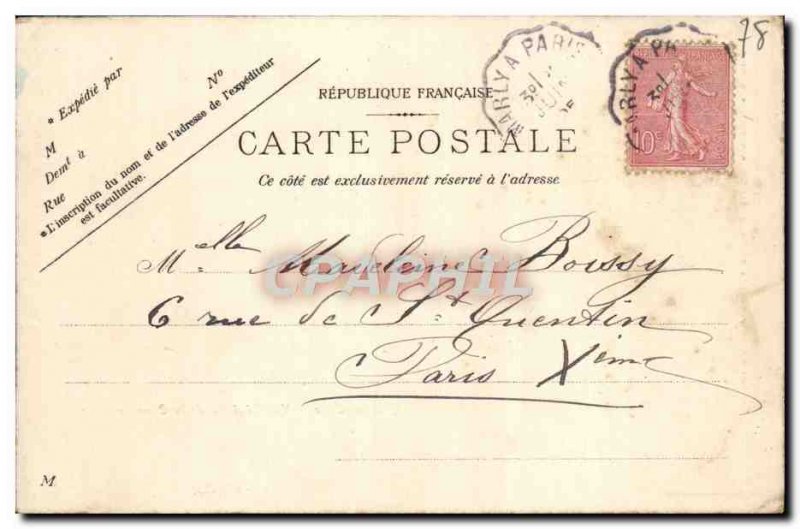 78
MARLY A PARIS
MARLY A PA
10c
* Expédié par
No
M
Demt à
Rue
* L'inscription du nom et de l'adresse de l'expéditeur
est facultative.
RÉPUBLIQUE FRANÇAISE
CARTE POSTALE
Ce côté est exclusivement réservé à l'adresse
CPAPHIL
Melle Madeleine Boissy
6 rue de St Quentin
Paris Xème
M